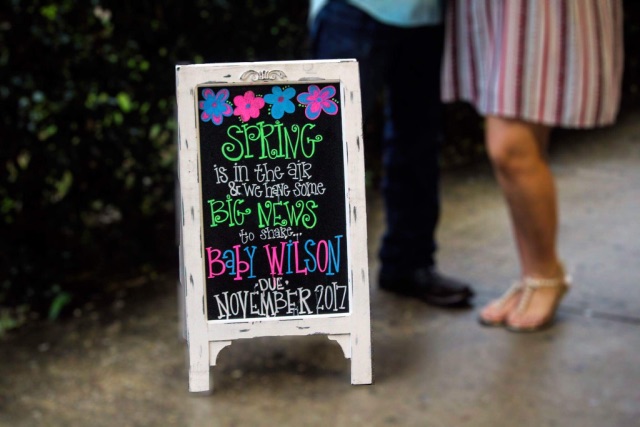 SPRING
is in the air
& we have some
BIG NEWS
to share...
BaBy WILSON
·DUE·
NOVEMBER 2017